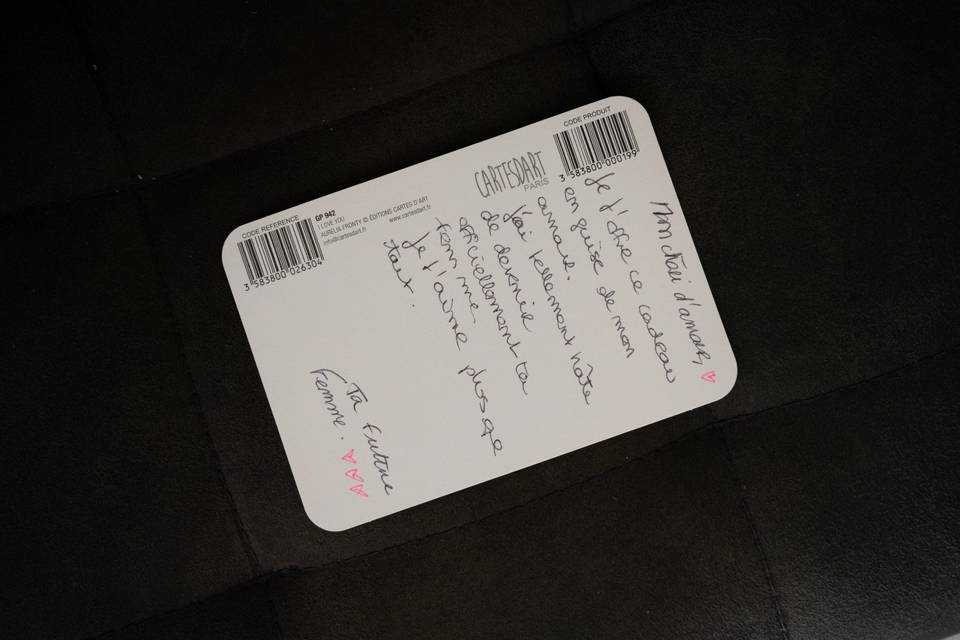 CODE REFERENCE
3 583800 026304
GP 942
I LOVE YOU
AURELIA FRONTY © ÉDITIONS CARTES D'ART
info@cartesdart.fr
www.cartesdart.fr
CARTESDART
PARIS
CODE PRODUIT
3 583800 000199
Mon chéri d'amour,
Je t'offre ce cadeau
en guise de mon
amour.
J'ai tellement hâte
de devenir
officiellement ta
femme.
Je t'aime plus que
tout.
Ta future
Femme.